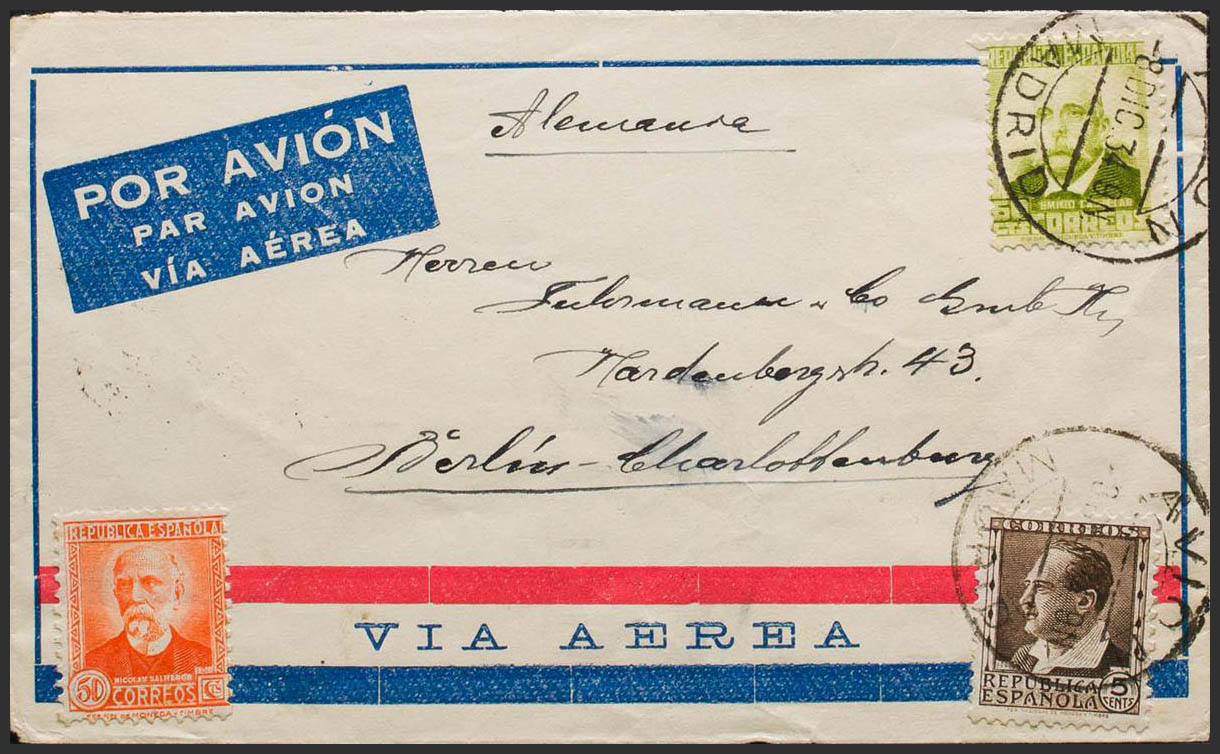 POR AVIÓN
PAR AVION
VÍA AÉREA
Alemania
REPUBLICA ESPAÑOLA
EMILIO
CORREOS
MADRID
8 DIC 34
Herren
Fuhrmann & Co GmbH
Hardenbergstr. 43.
Berlin-Charlottenburg
REPUBLICA ESPAÑOLA
NICOLAS SALMERON
50 CORREOS CTS
VIA AEREA
CORREOS
REPUBLICA
ESPAÑOLA
5 CENTS
AVION